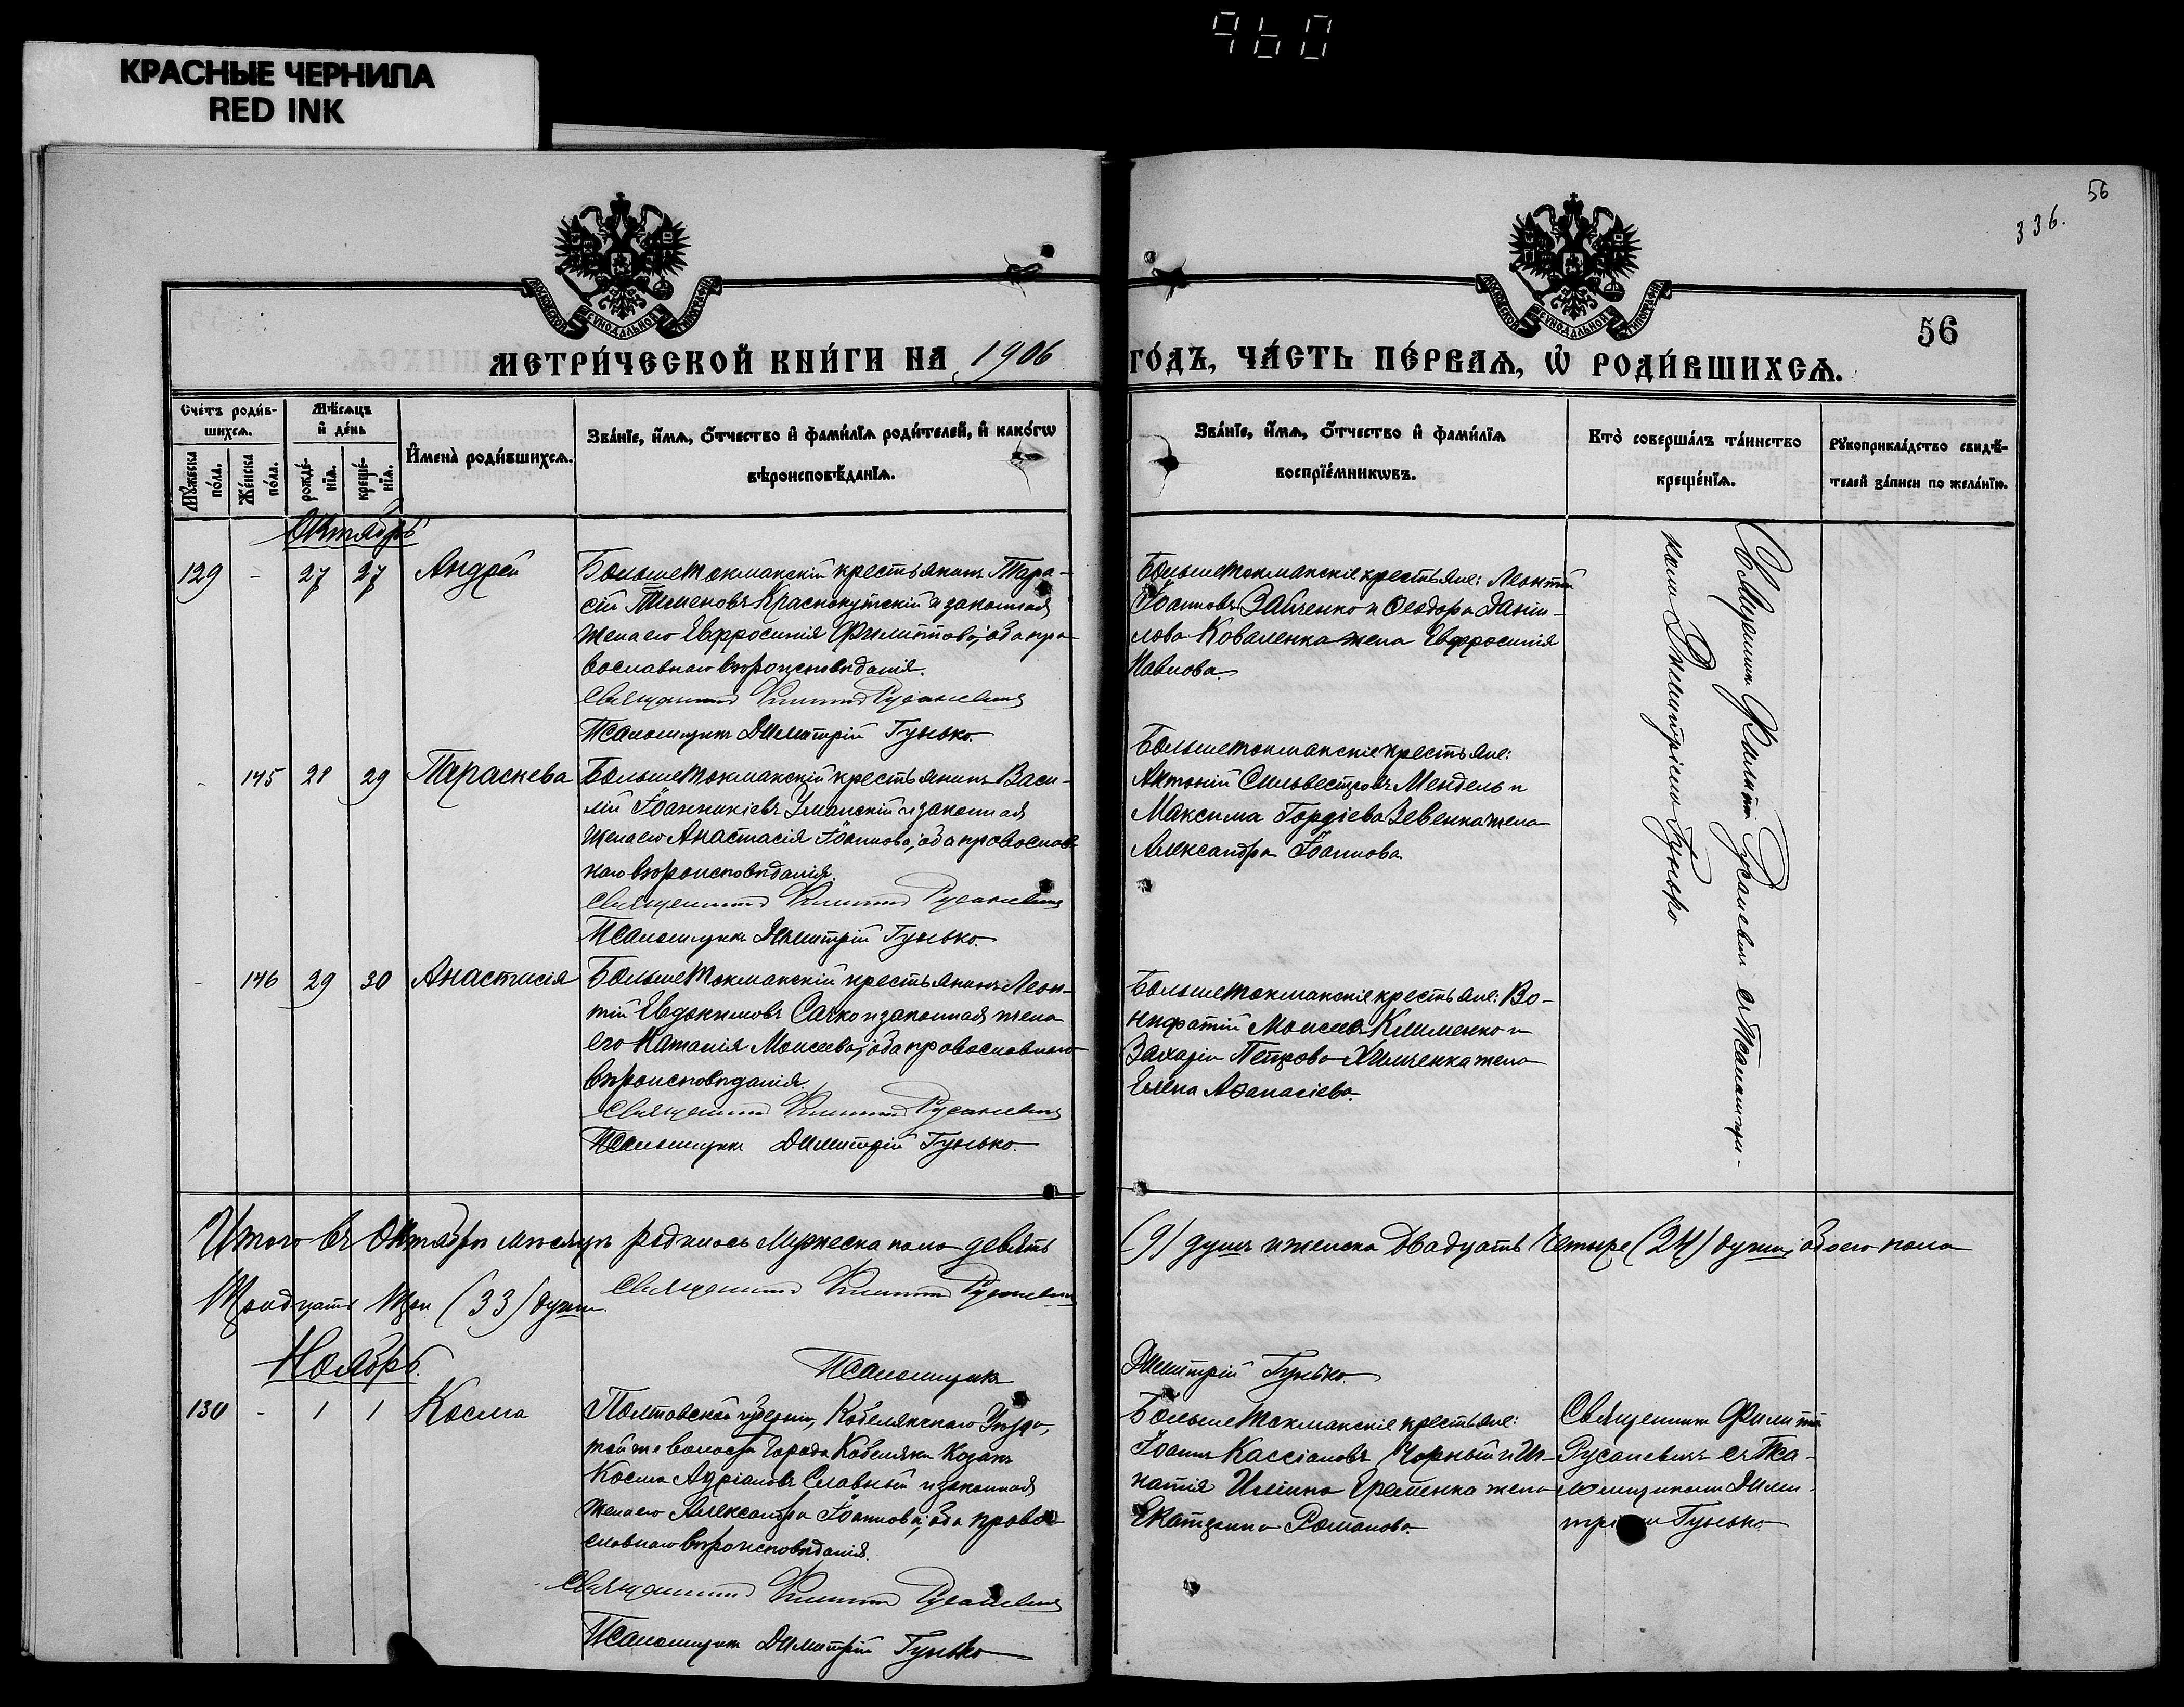 960
КРАСНЫЕ ЧЕРНИЛА
RED INK
56
336.
МОСКОВСКОЙ СУНОДАЛЬНОЙ ТИПОГРАФІИ
МОСКОВСКОЙ СУНОДАЛЬНОЙ ТИПОГРАФІИ
56
МЕТРИ́ЧЕСКОЙ КНИ́ГИ НА 1906
ГО́ДЪ, ЧА́СТЬ ПЕ́РВАѦ, Ѡ҆ РОДИ́ВШИХСѦ.
Сче́тъ роди́в-
шихсѧ.
Мѣ́сѧцъ
и҆ де́нь
И҆мена̀ роди́вшихсѧ.
Зва́нїе, и҆́мѧ, ѻ҆́тчество и҆ фами́лїѧ роди́телей, и҆ како́гѡ
вѣроисповѣ́данїѧ.
Мꙋ́жеска
по́ла.
Же́нска
по́ла.
рожде́-
нїѧ.
креще́-
нїѧ.
Зва́нїе, и҆́мѧ, ѻ҆́тчество и҆ фами́лїѧ
воспрїе́мникѡвъ.
Кто̀ соверша́лъ та́инство
креще́нїѧ.
Рꙋкоприкла́дство свидѣ́-
телей за́писи по жела́нїю.
Октябрь
129 - 27 27 Андрей
Большетокмакскій крестьянинъ Тара-
сій Краснокутскій и законная
жена его Евфросинія Филиппова; оба пра-
вославнаго вѣроисповѣданія.
Священникъ Филиппъ Русаневичъ
Псаломщикъ Димитрій Гунько.
Большетокмакскіе крестьяне: Леонтій
Іоанновъ Зайченко и Ѳеодора Данiи-
лова Коваленка жена Евфросинія
Павлова.
- 145 28 29 Параскева
Большетокмакскій крестьянинъ Васи-
лій Іоанникіевъ Уманскій и законная
жена его Анастасія Іоаннова; оба православ-
наго вѣроисповѣданія.
Священникъ Филиппъ Русаневичъ
Псаломщикъ Димитрій Гунько.
Большетокмакскіе крестьяне:
Антоній Сильвестровъ Мендель и
Максима Гордіева Зевенка жена
Александра Іоаннова.
- 146 29 30 Анастасія
Большетокмакскій крестьянинъ Леон-
тій Евдокимовъ Сачко и законная жена
его Наталія Моисеева; оба православнаго
вѣроисповѣданія.
Священникъ Филиппъ Русаневичъ
Псаломщикъ Димитрій Гунько.
Большетокмакскіе крестьяне: Во-
нифатій Моисеевъ Клименко и
Захаріи Петрова Химченка жена
Елена Аѳанасіева.
Священникъ Филиппъ Русаневичъ съ Псаломщи-
комъ Димитріемъ Гунько
Итого въ Октябрѣ мѣсяцѣ родилось мужеска пола девять
(9) душъ и женска двадцать четыре (24) души, обоего пола
тридцать три (33) души.
Священникъ Филиппъ Русаневичъ
Псаломщикъ
Димитрій Гунько.
Ноябрь.
130 - 1 1 Косма
Полтавской губерніи, Кобелякскаго Уѣзда,
той же волости города Кобеляки Козакъ
Косма Адріановъ Славный и законная
жена его Александра Іоаннова; оба право-
славнаго вѣроисповѣданія.
Священникъ Филиппъ Русаневичъ
Псаломщикъ Димитрій Гунько
Большетокмакскіе крестьяне:
Іоаннъ Кассіановъ Чорный и Иг-
натія Ильина Еременка жена
Екатерина Романова.
Священникъ Филиппъ
Русаневичъ съ Пса-
ломщикомъ Дими-
тріемъ Гунько.